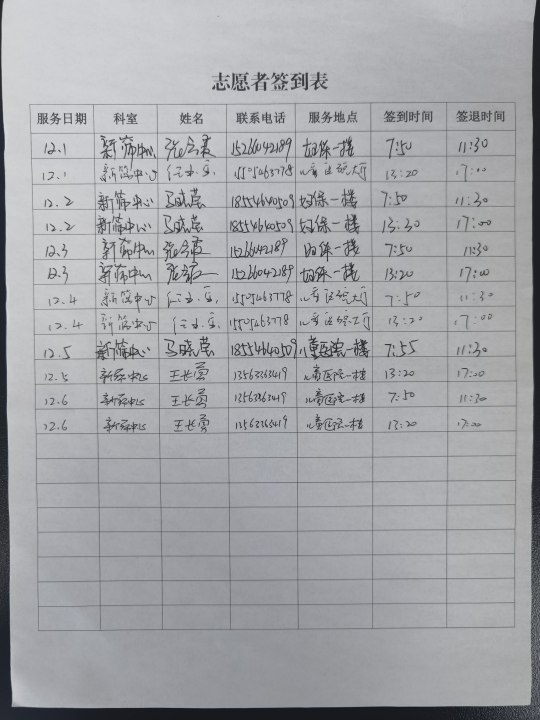 志愿者签到表
服务日期 科室 姓名 联系电话 服务地点 签到时间 签退时间
12.1 新筛中心 15266042189 妇保一楼 7:50 11:30
12.1 新筛中心 15505463778 儿童医院大厅 13:20 17:00
12.2 新筛中心 马晓莹 18554640509 妇保一楼 7:50 11:30
12.2 新筛中心 马晓莹 18554640509 妇保一楼 13:30 17:00
12.3 新筛中心 15266042189 妇保一楼 7:50 11:30
12.3 新筛中心 15266042189 妇保一楼 13:20 17:00
12.4 新筛中心 15505463778 儿童医院大厅 7:50 11:30
12.4 新筛中心 15505463778 儿童医院大厅 13:20 17:00
12.5 新筛中心 马晓莹 18554640509 儿童医院一楼 7:55 11:30
12.5 新筛中心 王长勇 13563263419 儿童医院一楼 13:20 17:00
12.6 新筛中心 王长勇 13563263419 儿童医院一楼 7:50 11:30
12.6 新筛中心 王长勇 13563263419 儿童医院一楼 13:20 17:00